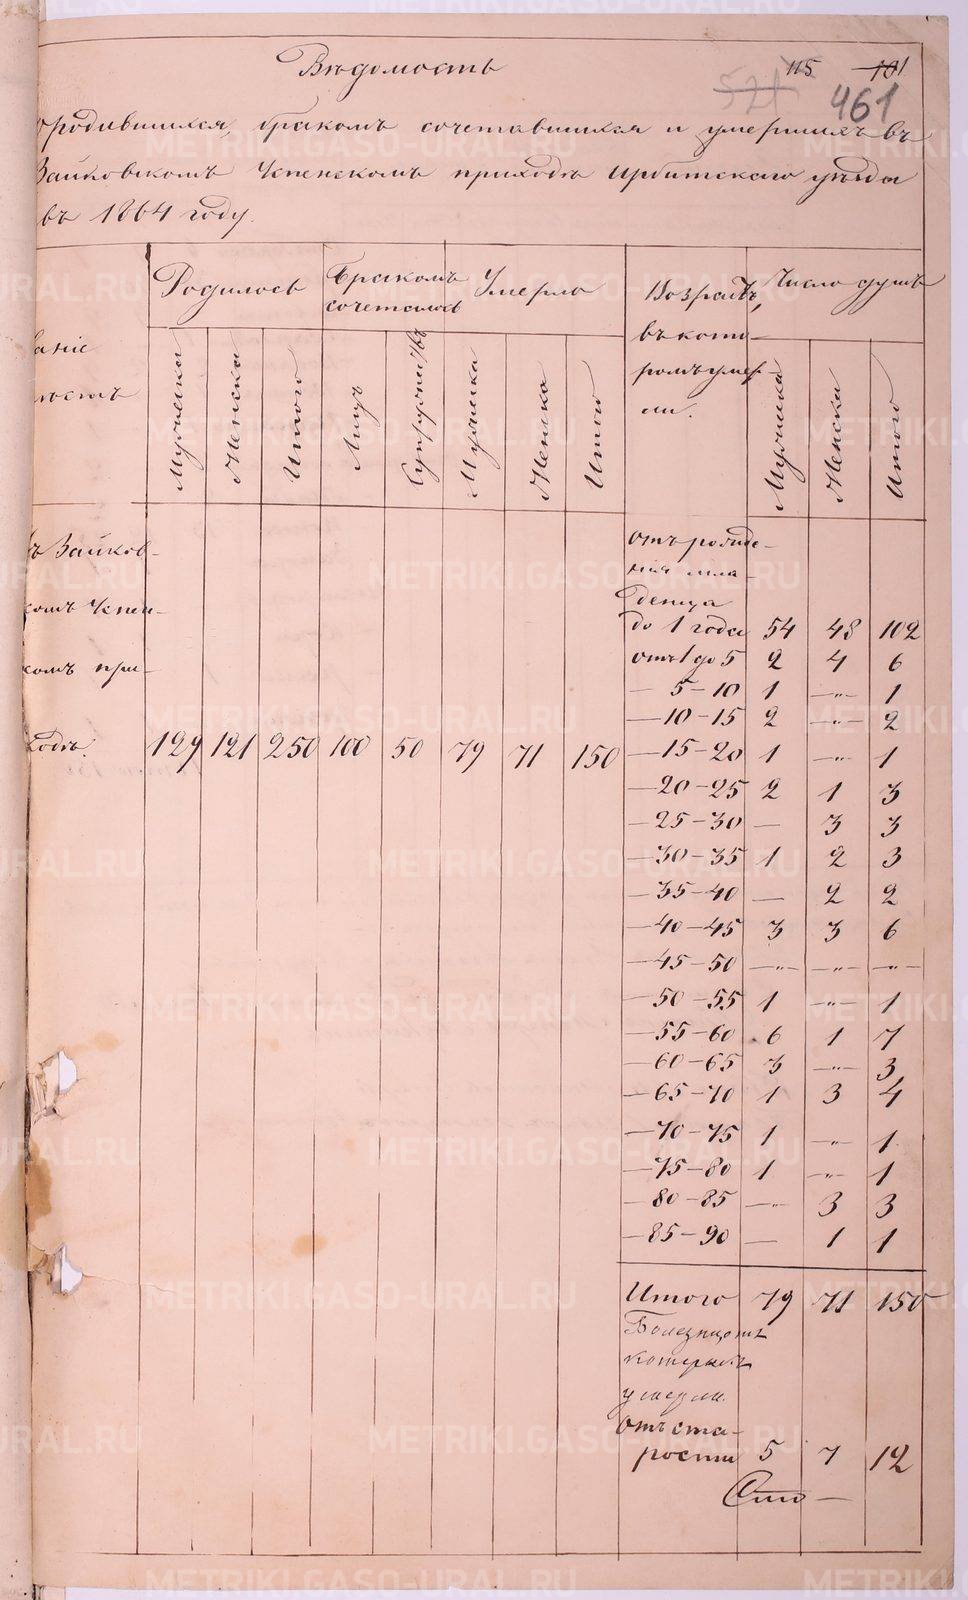 Вѣдомость
115
101
521
461
о родившихся, бракомъ сочетавшихся и умершихъ въ
Зайковскомъ Успенскомъ приходѣ Ирбитскаго уѣзда
въ 1864 году.
Родилось
Бракомъ
сочеталось
Умерло
Возрастъ,
въ кото-
ромъ умер-
ли.
Число душъ
ваніе
Мужеска
Женска
Итого
Лицъ
Супружествъ
Мужеска
Женска
Итого
Мужеска
Женска
Итого
въ Зайков-
комъ Успен-
комъ при-
ходѣ. 129 121 250 100 50 79 71 150
отъ рожде-
нія мла-
денца
до 1 года 54 48 102
отъ 1 до 5 2 4 6
— 5-10 1 —"— 1
— 10-15 2 —"— 2
— 15-20 1 —"— 1
— 20-25 2 1 3
— 25-30 — 3 3
— 30-35 1 2 3
— 35-40 — 2 2
— 40-45 3 3 6
— 45-50 —"— —"— —"—
— 50-55 1 —"— 1
— 55-60 6 1 7
— 60-65 3 —"— 3
— 65-70 1 3 4
— 70-75 1 —"— 1
— 75-80 1 —"— 1
— 80-85 —"— 3 3
— 85-90 — 1 1
Итого 79 71 150
Болезни отъ
которыхъ
умерли.
отъ ста-
рости 5 7 12
METRIKI.GASO-URAL.RU